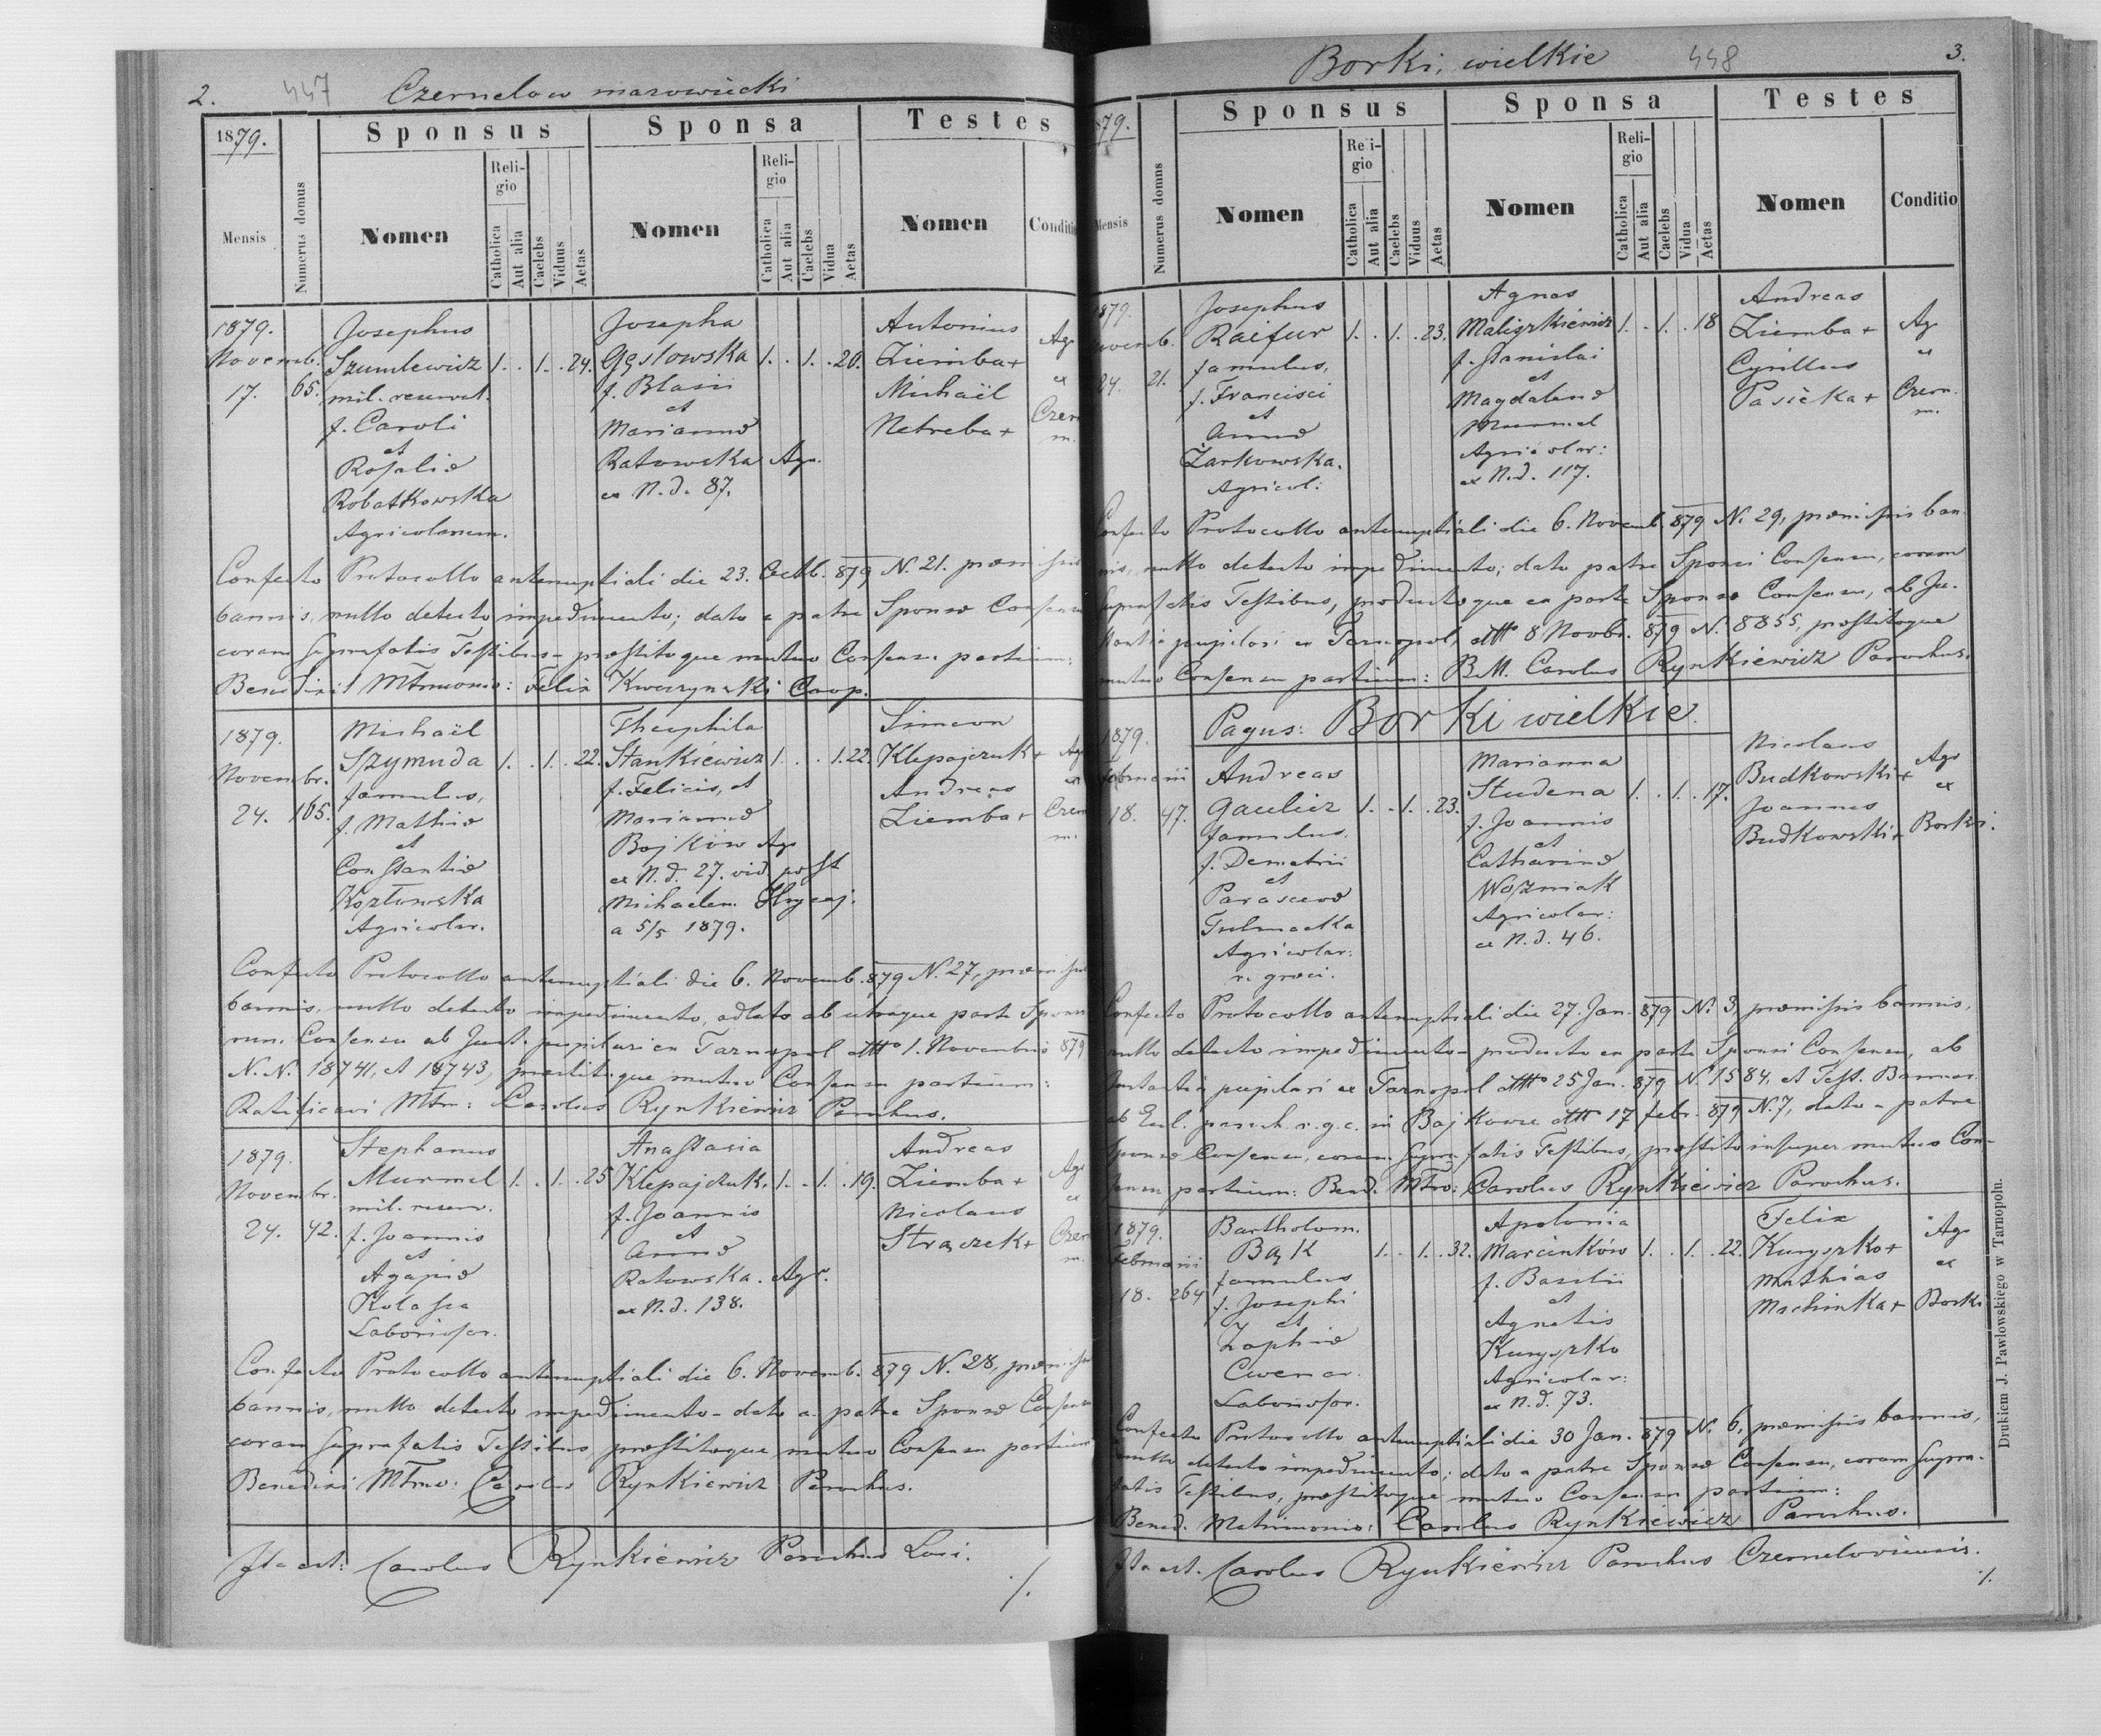 2. 447 Czernelow mazowiecki
1879.
Sponsus Sponsa Testes
Mensis
Numerus domus
Nomen
Religio
Catholica
Aut alia
Caelebs
Viduus
Aetas
Nomen
Religio
Catholica
Aut alia
Caelebs
Vidua
Aetas
Nomen
Conditio
1879.
Novemb.
17. 65.
Josephus
Szumlewicz 1. . 1. . 24.
mil. reservat.
f. Caroli
et
Rosaliæ
Robatkowska
Agricolarum.
Josepha
Gęsłowska 1. . 1. . 20.
f. Blasii
et
Mariannæ
Ratowska Agr.
ex N. d. 87.
Antonius
Ziemba +
Michaël
Netreba +
Agr
ex
Czern
m.
Confecto Protocollo antenuptiali die 23. Octb. 879 N. 21. præmissis
bannis, nullo detecto impedimento; dato a patre Sponsæ Consensu
coram suprafatis Testibus – præstitoque mutuo Consensu partium:
Benedixit Mtrmonio: Felix Kwaszynski Coop.
1879.
Novembr.
24. 165.
Michaël
Szymuda 1. . 1. . 22.
famulus,
f. Mathiæ
et
Constantiæ
Kozłowska
Agricolar.
Theophila
Stankiéwicz 1. . . 1. 22.
f. Felicis, et
Mariannæ
Bojków Agr
ex N. d. 27. vid. post
Michaelem Hrycaj.
a 5/5 1879.
Simeon
Klepajczuk +
Andreas
Ziemba +
Agr
ex
Czern
m.
Confecto Protocollo antenuptiali die 6. Novemb. 879 N. 27, præmissis
bannis, nullo detecto impedimento, adlato ab utraque parte Sponso
rum. Consensu ab Just. pupilari ex Tarnopol dtto 1. Novembris 879
N. N. 18741, et 18743, præstitoque mutuo Consensu partium:
Ratificavi Mtm: Carolus Rynkiéwicz Parochus.
1879.
Novembr.
24. 42.
Stephanus
Murmel 1. . 1. . 25
mil. reserv.
f. Joannis
et
Agapiæ
Kolassa
Laboriosor.
Anastasia
Klepajczuk. 1. . 1. . 19.
f. Joannis
et
Annæ
Ratowska. Agr.
ex N. d. 138.
Andreas
Ziemba +
Nicolaus
Strączek +
Agr
ex
Czern
m.
Confecto Protocollo antenuptiali die 6. Novemb. 879 N. 28, præmissis
bannis, nullo detecto impedimento – dato a patre Sponsæ Consensu
coram suprafatis Testibus, præstitoque mutuo Consensu partium
Benedixi Mtrmo: Carolus Rynkiewicz Parochus.
Ita est: Carolus Rynkiéwicz Parochus Loci.
./.
Borki wielkie 448 3.
879.
Sponsus Sponsa Testes
Mensis
Numerus domus
Nomen
Religio
Catholica
Aut alia
Caelebs
Viduus
Aetas
Nomen
Religio
Catholica
Aut alia
Caelebs
Vidua
Aetas
Nomen
Conditio
1879.
Novemb.
24. 21.
Josephus
Raifur 1. . 1. . 23.
famulus,
f. Francisci
et
Annæ
Żarkowska.
Agricol:
Agnes
Maliszkiéwicz 1. . 1. . 18
f. Stanislai
et
Magdalenæ
Murmel
Agricolar:
ex N. d. 117.
Andreas
Ziemba +
Cyrillus
Pasićka +
Agr
ex
Czern.
m.
Confecto Protocollo antenuptiali die 6. Novemb. 879 N. 29, præmissis ban
nis, nullo detecto impedimento; dato patre Sponsi Consensu, coram
suprafatis Testibus, productoque ex parte Sponsæ Consensu, ab Ju.
stantia pupilari ex Tarnopol, dtto 8 Novbr. 879 N. 8855, præstitoque
mutuo Consensu partium: B. M. Carolus Rynkiewicz Parochus.
Pagus: Borki wielkie.
1879.
Februarii
18. 47.
Andreas
Gaulicz 1. . 1. . 23.
famulus.
f. Demetrii
et
Parascevæ
Tulmacka
Agricolar:
r. græci.
Marianna
Studena 1. . 1. . 17.
f. Joannis
et
Catharinæ
Woźniak
Agricolar:
ex N. d. 46.
Nicolaus
Budkowski +
Joannes
Budkowski +
Agr
ex
Borki.
Confecto Protocollo antenuptiali die 27. Jan. 879 N. 3, præmissis bannis,
nullo detecto impedimento – producto ex parte Sponsi Consensu, ab
Instantia pupilari ex Tarnopol dtto 25 Jan. 879 N. 1584, et Test. Bannor.
ab Eccl. paroch. r. g. c. in Bajkowce dtto 17 febr. 879 N. 7, dato a patre
Sponsæ Consensu, coram suprafatis Testibus, præstito insuper mutuo Con-
sensu partium: Bened. Mtro: Carolus Rynkiéwicz Parochus.
1879.
Februarii
18. 264
Bartholom.
Bąk 1. . 1. . 32.
famulus
f. Josephi
et
Zophiæ
Cwenar.
Laboriosor.
Apolonia
Marcinków 1. . 1. . 22.
f. Basilii
et
Agnetis
Kuryszko
Agricolar:
ex N. d. 73.
Felix
Kuryszko +
Mathias
Machinka +
Agr
ex
Borki
Confecto Protocollo antenuptiali die 30 Jan. 879 N. 6, præmissis bannis,
nullo detecto impedimento; dato a patre Sponsæ Consensu, coram supra-
fatis Testibus, præstitoque mutuo Consensu partium:
Bened. Matrimonio: Carolus Rynkiéwicz Parochus.
Ita est. Carolus Rynkiéwicz Parochus Czerneloviensis.
./.
Drukiem J. Pawłowskiego w Tarnopolu.